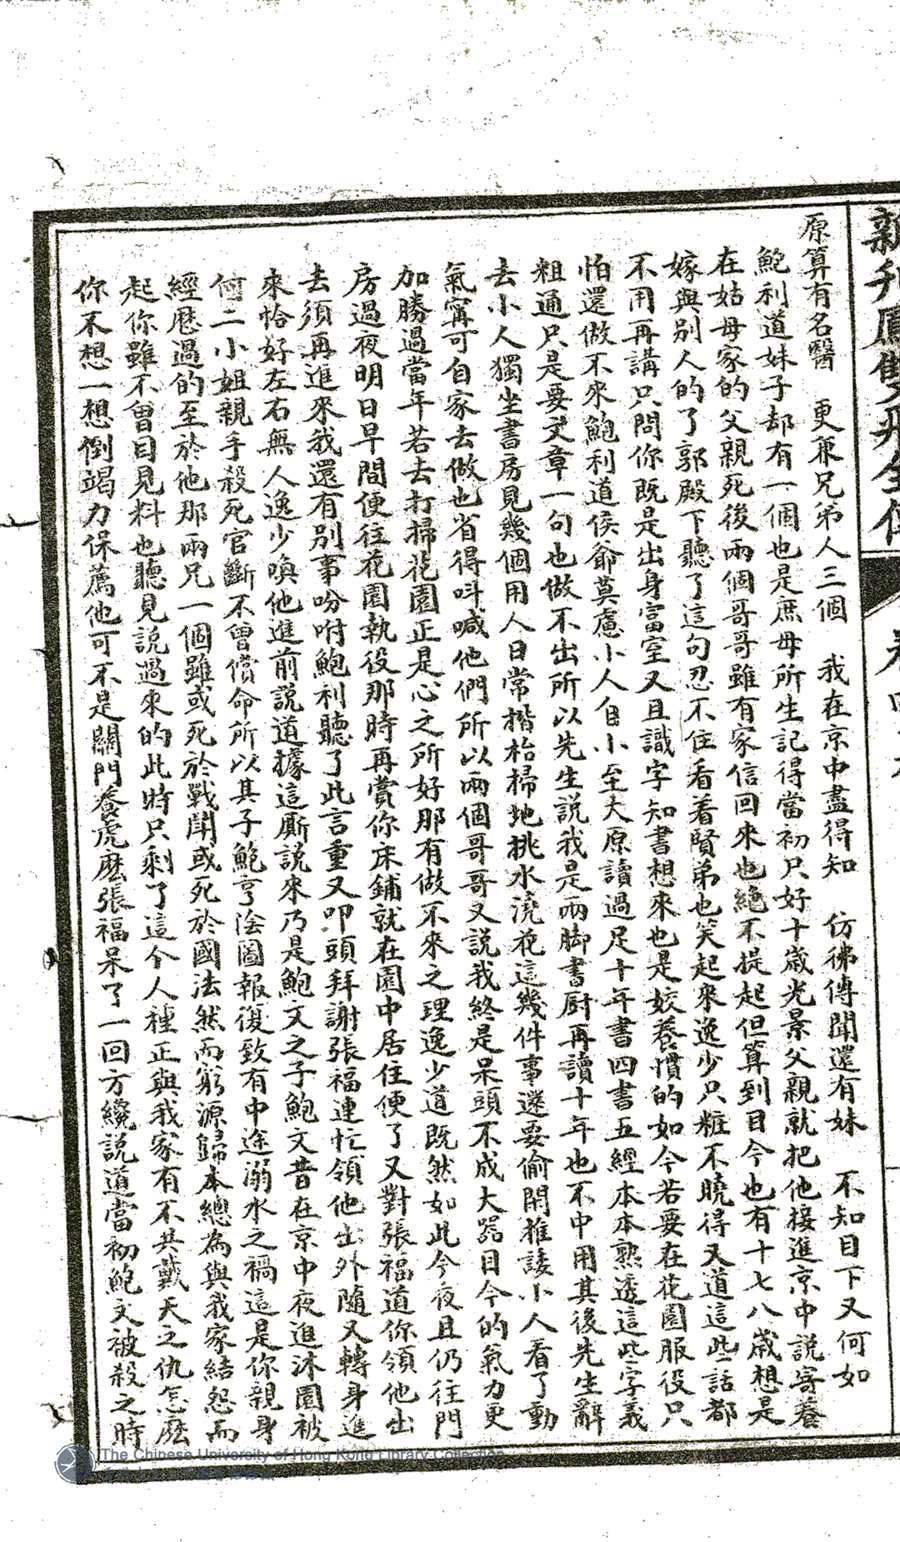 新刊鳳雙飛全傳 卷四十
原算有名醫　更兼兄弟人三個　我在京中盡得知　仿彿傳聞還有妹　不知目下又何如
鮑利道妹子却有一個也是庶母所生記得當初只好十歲光景父親就把他接進京中說寄養
在姑母家的父親死後兩個哥哥雖有家信回來也絕不提起但算到目今也有十七八歲想是
嫁與別人的了郭殿下聽了這句忍不住看着賢弟也笑起來逸少只粧不曉得又道這些話都
不用再講只問你既是出身富室又且識字知書想來也是姣養慣的如今若要在花園服役只
怕還做不來鮑利道侯爺莫慮小人自小至大原讀過足十年書四書五經本本熟透這些字義
粗通只是要文章一句也做不出所以先生說我是兩脚書厨再讀十年也不中用其後先生辭
去小人獨坐書房見幾個用人日常揩枱掃地挑水澆花這幾件事遂要偷閒推諉小人看了動
氣寗可自家去做也省得呌喊他們所以兩個哥哥又說我終是呆頭不成大器目今的氣力更
加勝過當年若去打掃花園正是心之所好那有做不來之理逸少道既然如此今夜且仍往門
房過夜明日早間便往花園執役那時再賞你床鋪就在園中居住便了又對張福道你領他出
去須再進來我還有別事吩咐鮑利聽了此言重又叩頭拜謝張福連忙領他出外隨又轉身進
來恰好左右無人逸少喚他進前説道據這厮説來乃是鮑文之子鮑文昔在京中夜進沐園被
何二小姐親手殺死官斷不曾償命所以其子鮑亨陰圖報復致有中途溺水之禍這是你親身
經歷過的至於他那兩兄一個雖或死於戰鬪或死於國法然而窮源歸本總為與我家結怨而
起你雖不曾目見料也聽見説過來的此時只剩了這今人種正與我家有不共戴天之仇怎麽
你不想一想倒竭力保薦他可不是關門養虎麽張福呆了一回方纔説道當初鮑文被殺之時
The Chinese University of Hong Kong Library Collection